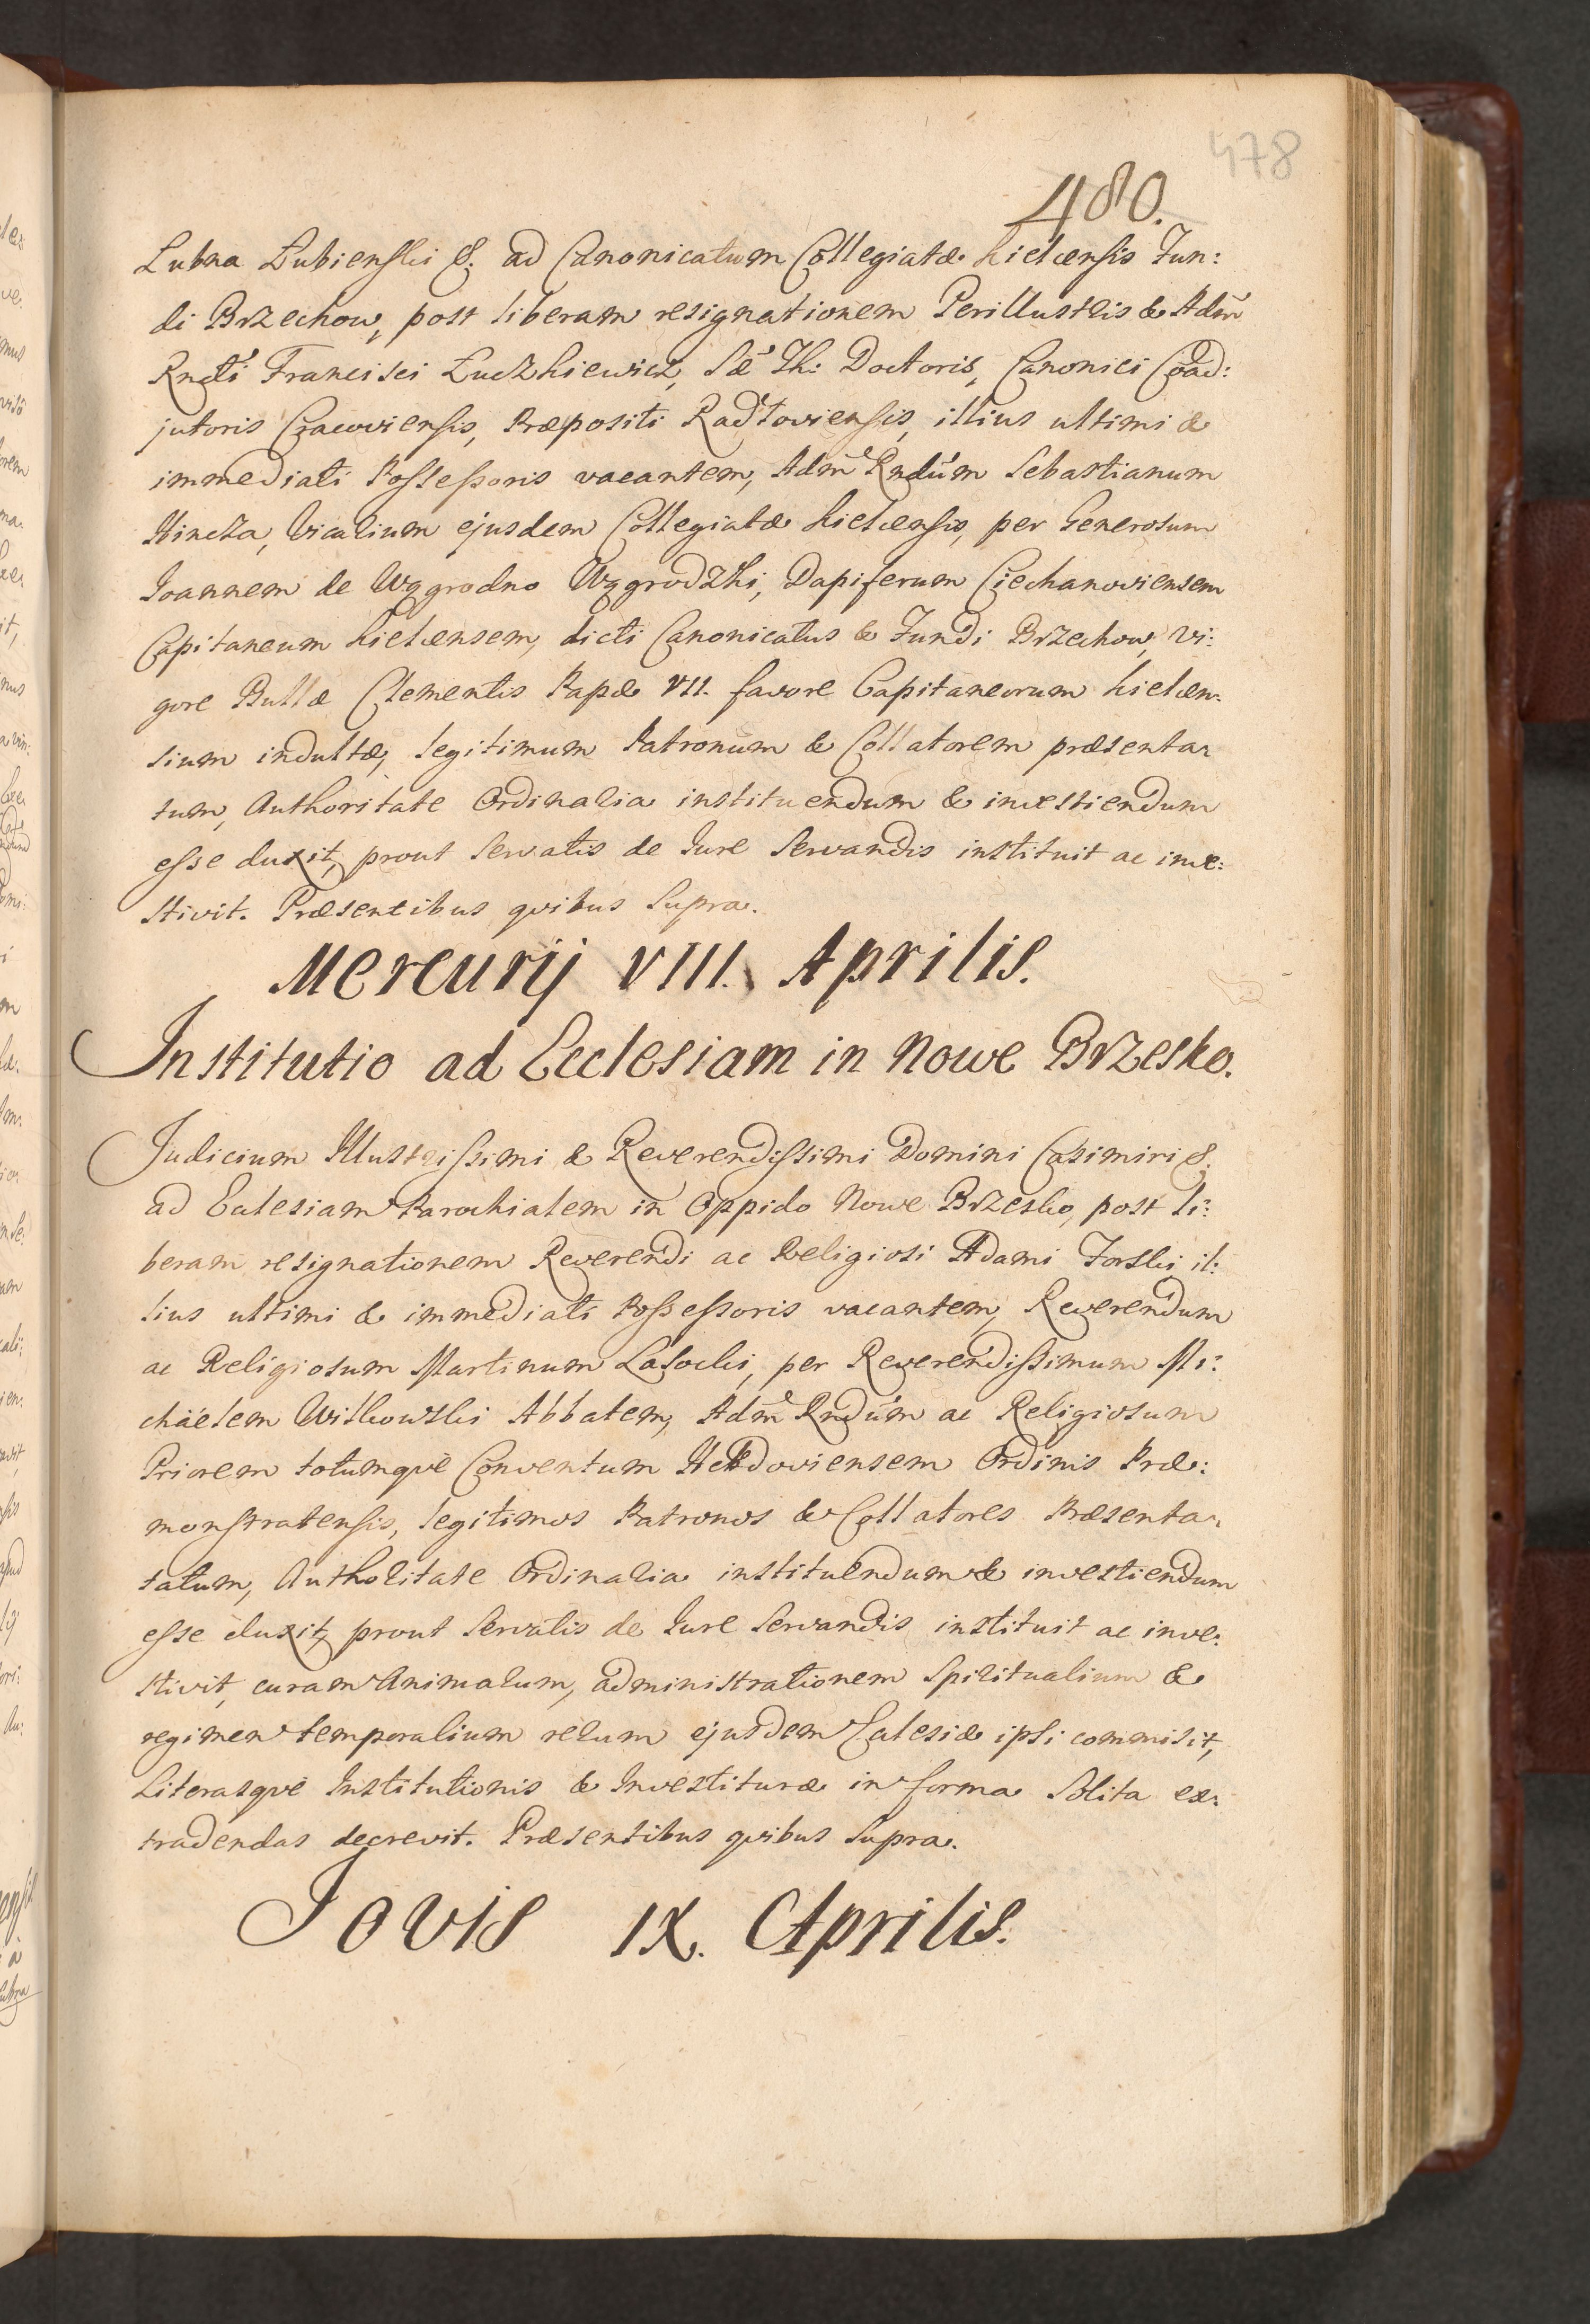 478
480.
Lubna Łubienski &. ad Canonicatum Collegiatæ Kielcensis Fun:
di Brzechow, post liberam resignationem Perillustris & Adm̃
Rndi Francisci Łuczkiewicz, Sæ Th: Doctoris, Canonici Coad:
jutoris Cracoviensis, Præpositi Radłoviensis, illius ultimi &
immediati Possessoris vacantem, Adm̃ Rndum Sebastianum
Hincza, Vicarium ejusdem Collegiatæ Kielcensis, per Generosum
Joannem de Wygrodno Wygrodzki, Dapiferum Ciechanoviensem
Capitaneum Kielcensem, dicti Canonicatus & Fundi Brzechow, vi:
gore Bullæ Clementis Papæ VII. favore Capitaneorum Kielcen:
sium indultæ, legitimum Patronum & Collatorem præsenta:
tum, Authoritate Ordinaria instituendum & investiendum
esse duxit, prout servatis de Jure servandis instituit ac inve:
stivit. Præsentibus quibus supra.
Mercurij VIII. Aprilis.
Institutio ad Ecclesiam in Nowe Brzesko.
Judicium Illustrissimi & Reverendissimi Domini Casimiri &.
ad Ecclesiam Parochialem in Oppido Nowe Brzesko, post li:
beram resignationem Reverendi ac Religiosi Adami Forski il:
lius ultimi & immediati Possessoris vacantem, Reverendum
ac Religiosum Martinum Lasocki, per Reverendissimum Mi:
chäelem Witkowski Abbatem, Adm̃ Rndum ac Religiosum
Priorem totumque Conventum Hebdoviensem Ordinis Præ:
monstratensis, legitimos Patronos & Collatores Præsenta:
tatum, Authoritate Ordinaria instituendum & investiendum
esse duxit, prout servatis de Jure servandis instituit ac inve:
stivit, curam Animarum, administrationem Spiritualium &
regimen temporalium rerum ejusdem Ecclesiæ ipsi commisit,
Literasque Institutionis & Investituræ in forma solita ex:
tradendas decrevit. Præsentibus quibus supra.
Jovis IX. Aprilis.